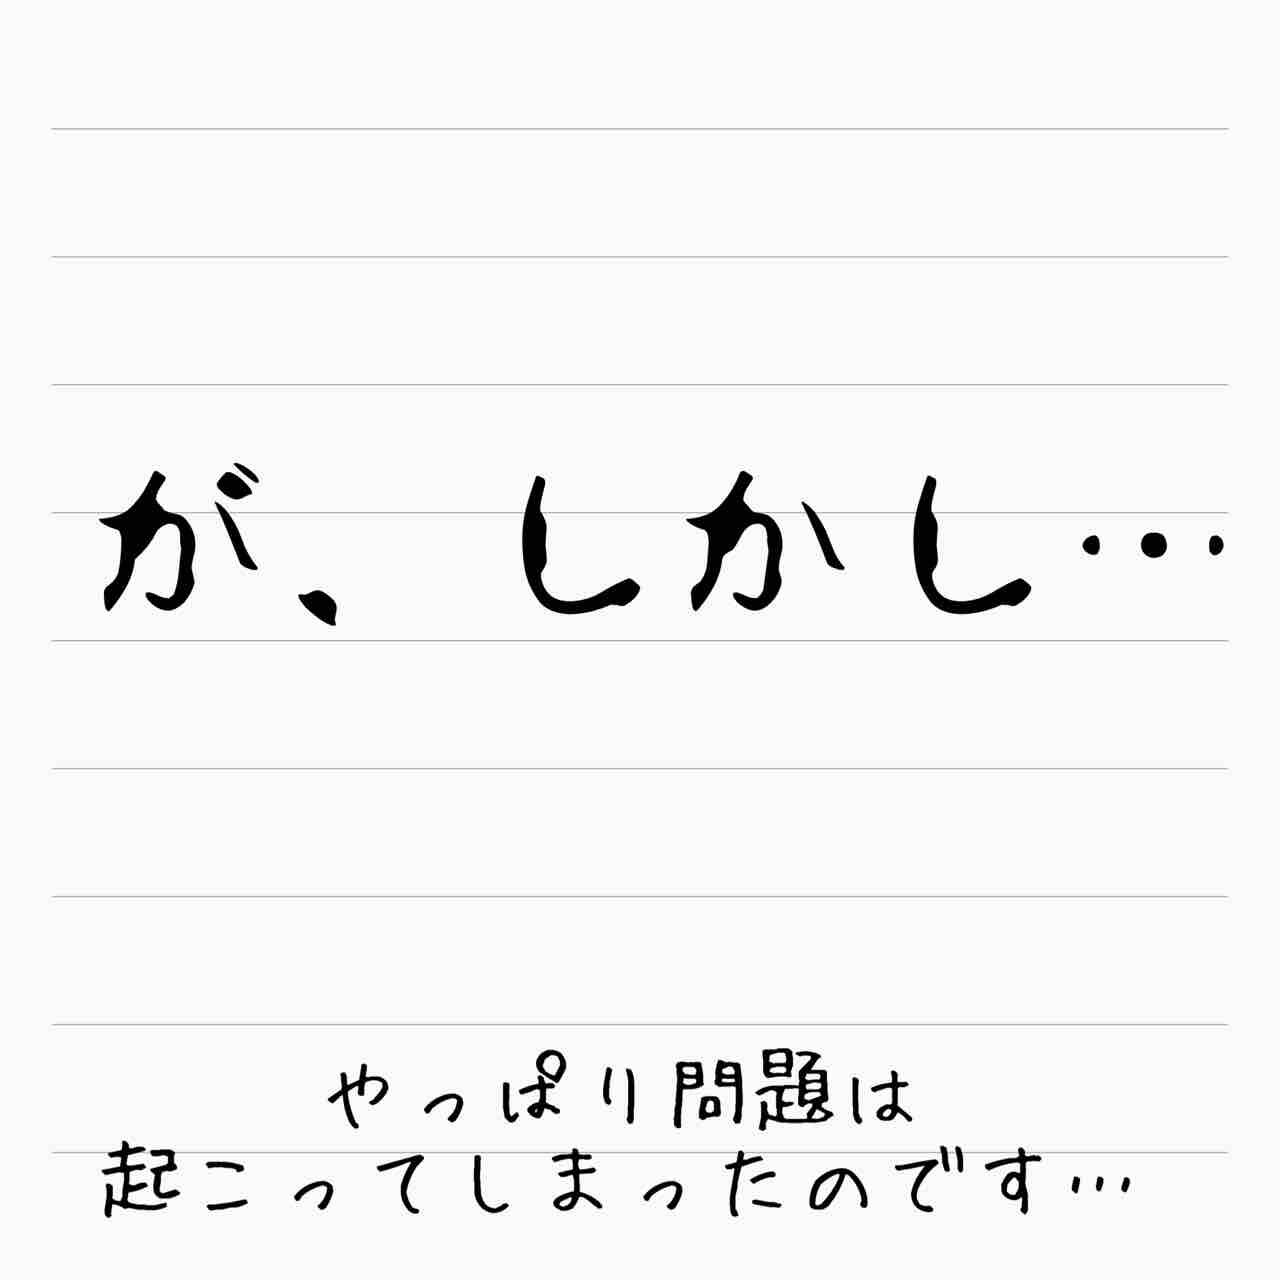 が、しかし…
やっぱり問題は
起こってしまったのです…